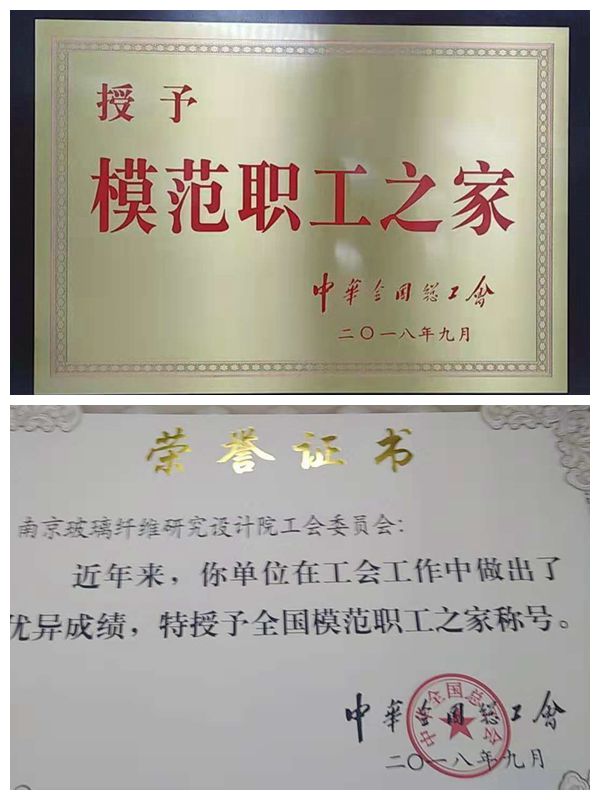 授予
模范职工之家
中華全国総工會
二〇一八年九月
荣誉证书
南京玻璃纤维研究设计院工会委员会：
近年来，你单位在工会工作中做出了
优异成绩，特授予全国模范职工之家称号。
中華全国総工會
中华全国总工会
二〇一八年九月